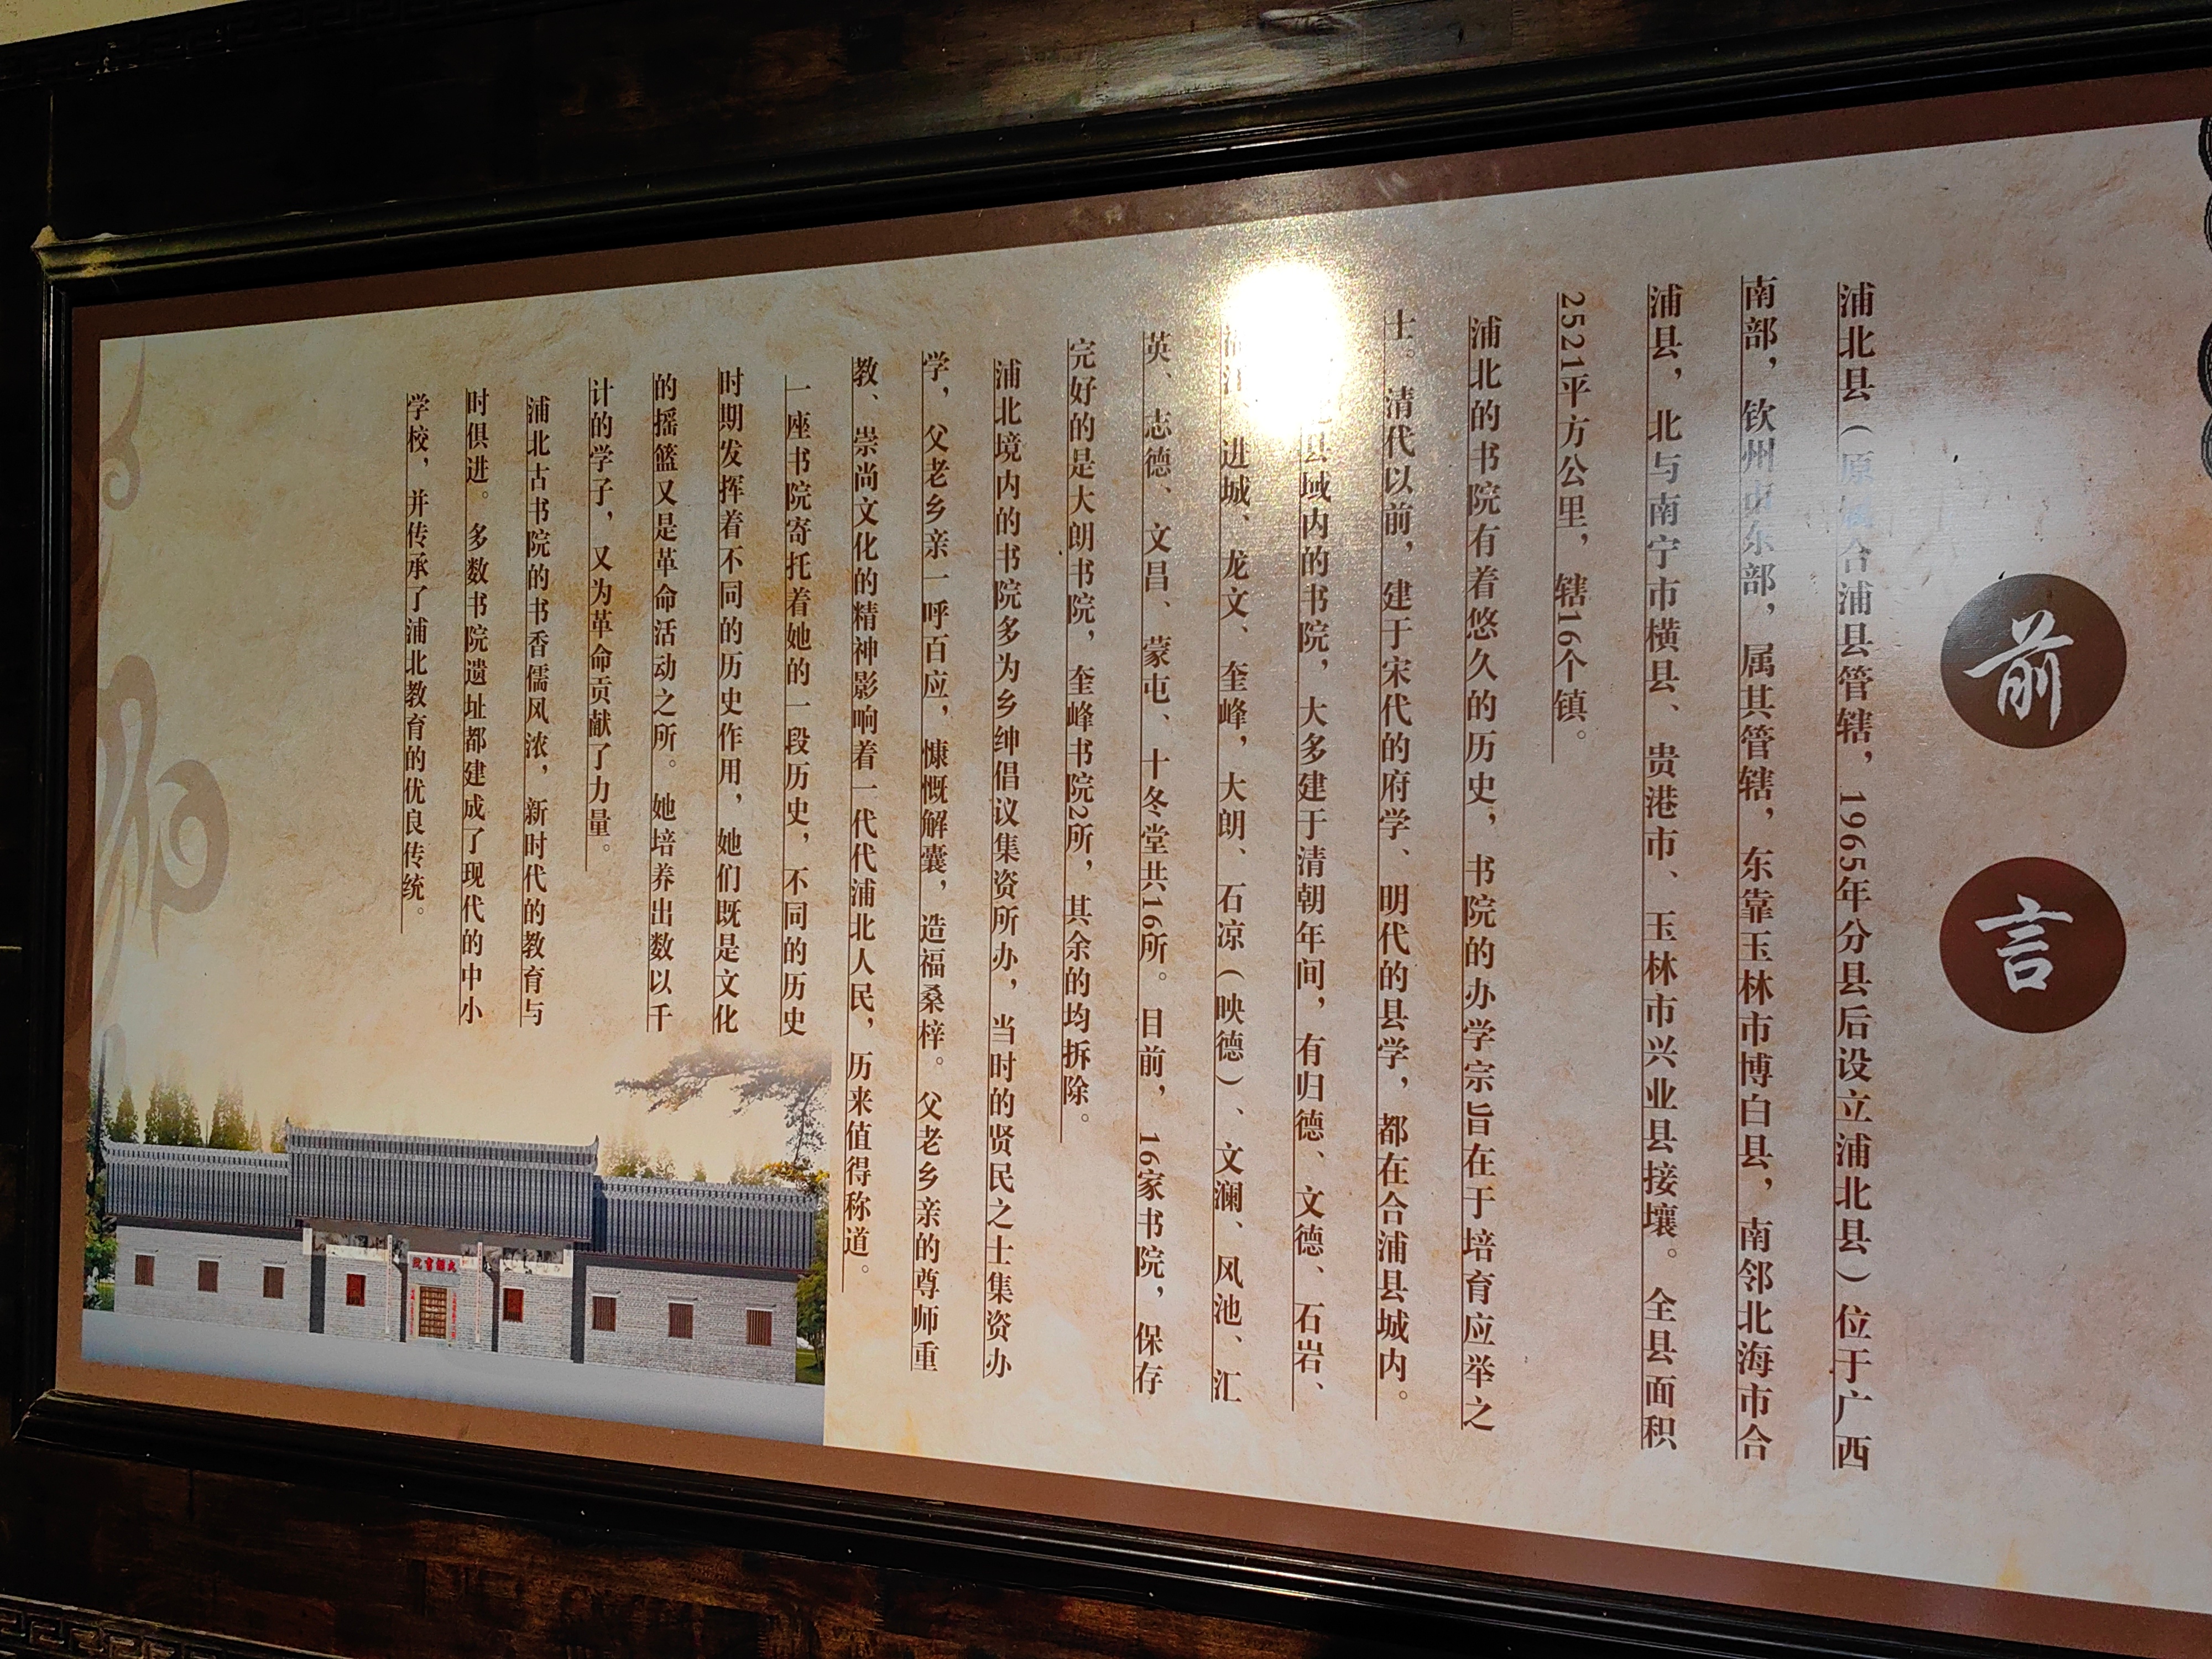 前言
浦北县（原属合浦县管辖，1965年分县后设立浦北县）位于广西
南部，钦州市东部，属其管辖，东靠玉林市博白县，南邻北海市合
浦县，北与南宁市横县、贵港市、玉林市兴业县接壤。全县面积
2521平方公里，辖16个镇。
浦北的书院有着悠久的历史，书院的办学宗旨在于培育应举之
士。清代以前，建于宋代的府学、明代的县学，都在合浦县城内。
县域内的书院，大多建于清朝年间，有归德、文德、石岩、
进城、龙文、奎峰，大朗、石凉（映德）、文澜、风池、汇
英、志德、文昌、蒙屯、十冬堂共16所。目前，16家书院，保存
完好的是大朗书院，奎峰书院2所，其余的均拆除。
浦北境内的书院多为乡绅倡议集资所办，当时的贤民之士集资办
学，父老乡亲一呼百应，慷慨解囊，造福桑梓。父老乡亲的尊师重
教、崇尚文化的精神影响着一代代浦北人民，历来值得称道。
一座书院寄托着她的一段历史，不同的历史
时期发挥着不同的历史作用，她们既是文化
的摇篮又是革命活动之所。她培养出数以千
计的学子，又为革命贡献了力量。
浦北古书院的书香儒风浓，新时代的教育与
时俱进。多数书院遗址都建成了现代的中小
学校，并传承了浦北教育的优良传统。
大朗書院